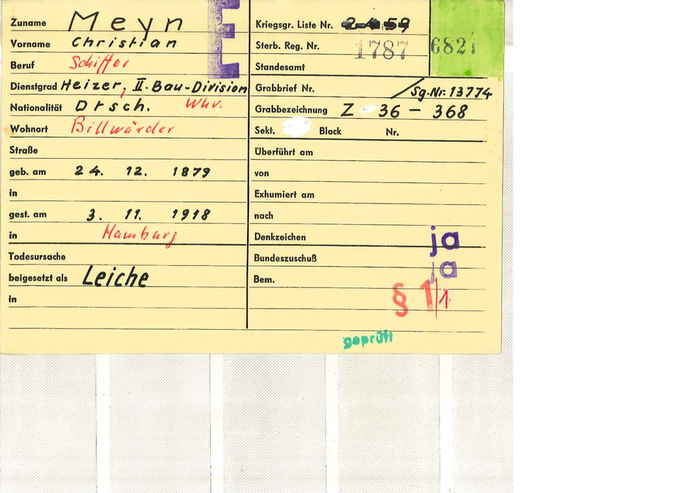 Zuname Meyn
Vorname Christian
Beruf Schiffer
Dienstgrad Heizer, II. Bau-Division
Nationalität Dtsch. Whv.
Wohnort Billwärder
Straße
geb. am 24. 12. 1879
in
gest. am 3. 11. 1918
in Hamburg
Todesursache
beigesetzt als Leiche
in
E
Kriegsgr. Liste Nr.
Sterb. Reg. Nr. 1787 6821
Standesamt
Grabbrief Nr. /Sg.Nr. 13774
Grabbezeichnung Z - 36 - 368
Sekt. Block Nr.
Überführt am
von
Exhumiert am
nach
Denkzeichen ja
Bundeszuschuß ja
Bem. § 1/1
geprüft